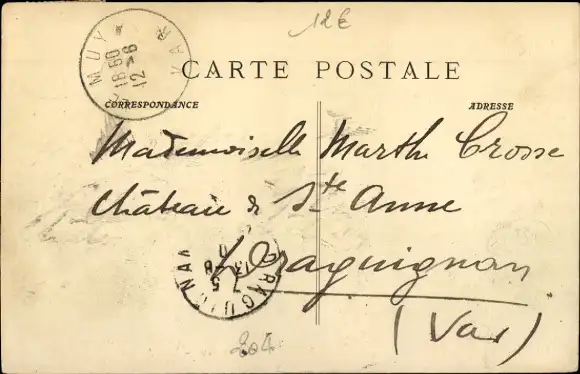 12€
MUY
VAR
18 50
12 -8
CARTE POSTALE
CORRESPONDANCE
ADRESSE
Mademoiselle Marthe Crosse
Château de Ste Anne
Draguignan
(Var)
DRAGUIGNAN